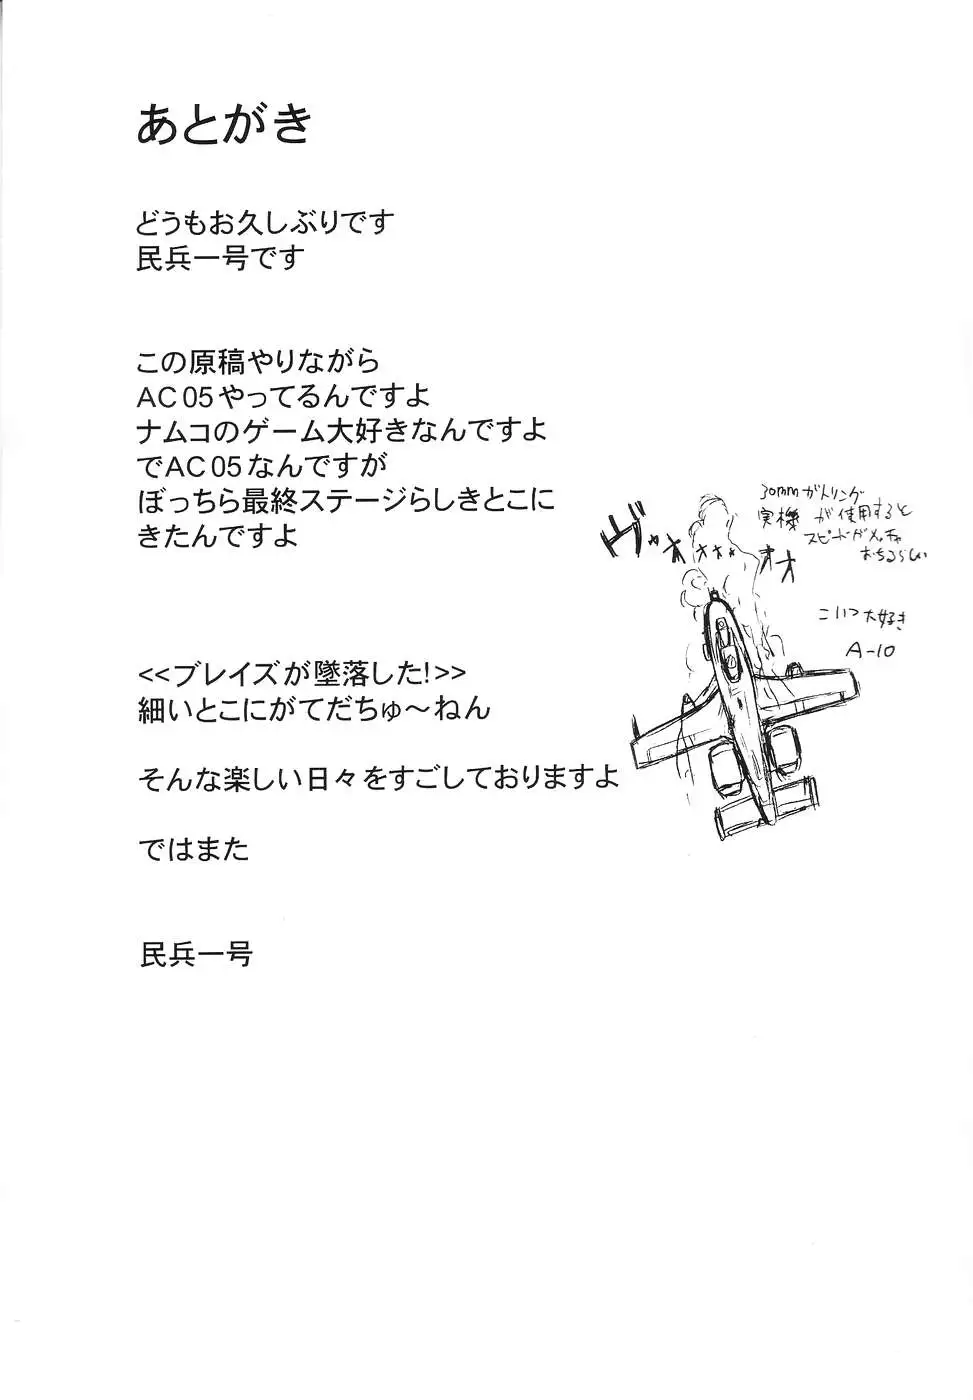 あとがき
どうもお久しぶりです
民兵一号です
この原稿やりながら
AC05やってるんですよ
ナムコのゲーム大好きなんですよ
でAC05なんですが
ぼっちら最終ステージらしきとこに
きたんですよ
<<ブレイズが墜落した!>>
細いとこにがてだちゅ～ねん
そんな楽しい日々をすごしておりますよ
ではまた
民兵一号
30mmガトリング
実機が使用すると
スピードがメッチャ
おちるらしい
ヴァォォォォオオ
こいつ大好き
A-10